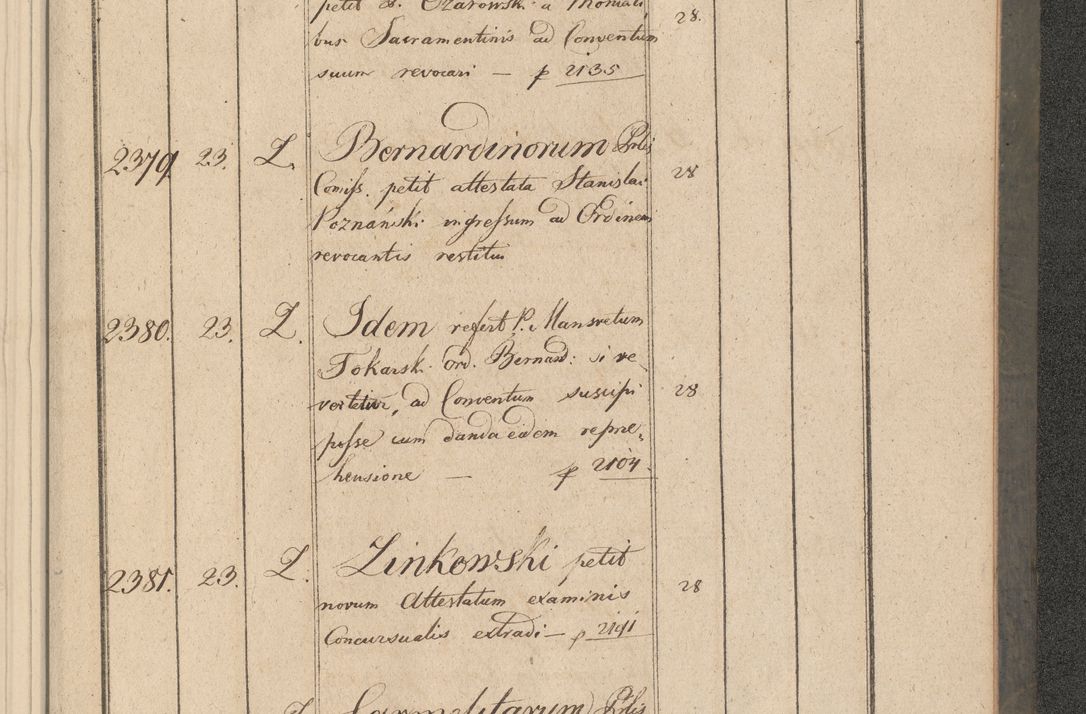 petit S. Ożarowski a Moniali
28.
bus Sacramentinis ad Conventum
suum revocari — p 2135
2379 23. L. Bernardinorum Prlis
Comiss. petit attestata Stanislai 28
Poznański ingressum ad Ordinem
revocantis restitui
2380. 23. L. Idem refert P. Mansvetum
Tokarsk. Ord. Bernard: si re
vertetur, ad Conventum suscipi 28
posse cum danda eidem repre
hensione — p 2104.
2381. 23. L. Zinkowski petit
novum Attestatum examinis 28
Concursualis extradi — p 2191
Carmelitarum Prlis